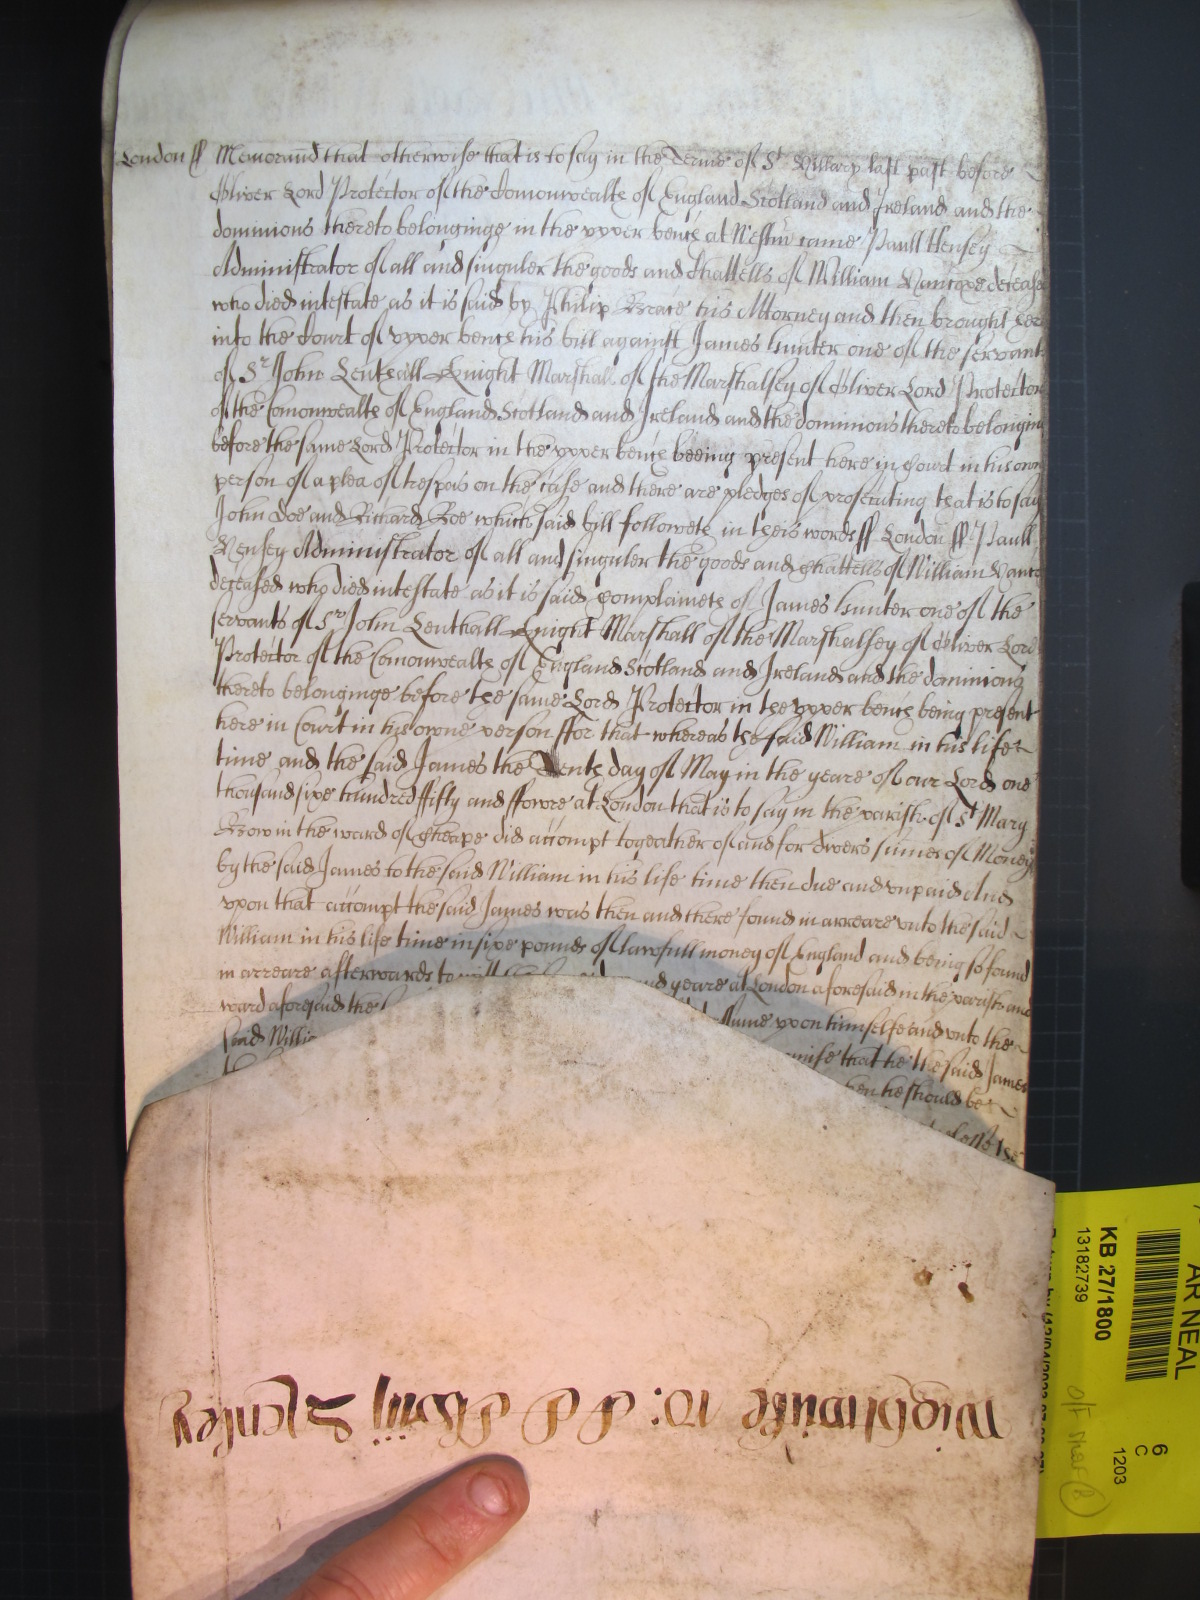 London ss Memorand that otherwise that is to say in the Terme of St Hillary last past before
Oliver Lord Protector of the Comonwealth of England Scotland and Ireland and the
dominions thereto belonginge in the upper bench at Westm came Paull Hensey
Administrator of all and singuler the goods and Chattells of William decease
who died intestate as it is said by Philip Brace his Attorney and then brought her
into the Court of upper bench his bill against James Hunter one of the servant
of Sr John Lenthall Knight Marshall of the Marshalsey of Oliver Lord Protector
of the Comonwealth of England Scotland and Ireland and the dominions thereto belongin
before the same Lord Protector in the upper bench beeing present here in Court in his own
person of a plea of trespas on the case and there are pledges of prosecuting that is to say
John Doe and Richard Roe which said bill followeth in theis words ss London ss Paull
Hensey Administrator of all and singuler the goods and Chattells of William
deceased who died intestate as it is said complaineth of James Hunter one of the
servants of Sr John Lenthall Knight Marshall of the Marshalsey of Oliver Lord
Protector of the Comonwealth of England Scotland and Ireland and the dominions
thereto belonginge before the same Lord Protector in the upper bench being present
here in Court in his owne person ffor that whereas the said William in his life
time and the said James the Tenth day of May in the yeare of our Lord one
thousand sixe hundred ffifty and ffowre at London that is to say in the parish of St Mary
Bow in the ward of Cheape did accompt togeather of and for divers sumes of Money
by the said James to the said William in his life time then due and unpaid And
upon that accompt the said James was then and there found in arreare unto the said
William in his life time in sixe pounds of lawfull money of England and being so found
in arreare afterwards to witt and yeare at London aforesaid in the parish and
ward aforesaid the assume upon himselfe and unto the
said Willi promise that he the said James
when he should be
KB 27/1800
13182739
AR NEAL
6
C
1203